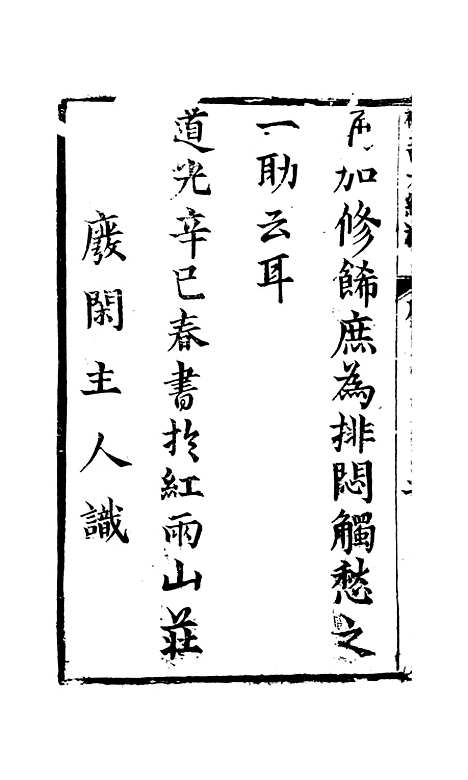 再加修餙庶為排悶觸愁之
一助云耳
道光辛巳春書於紅雨山莊
廢閑主人識